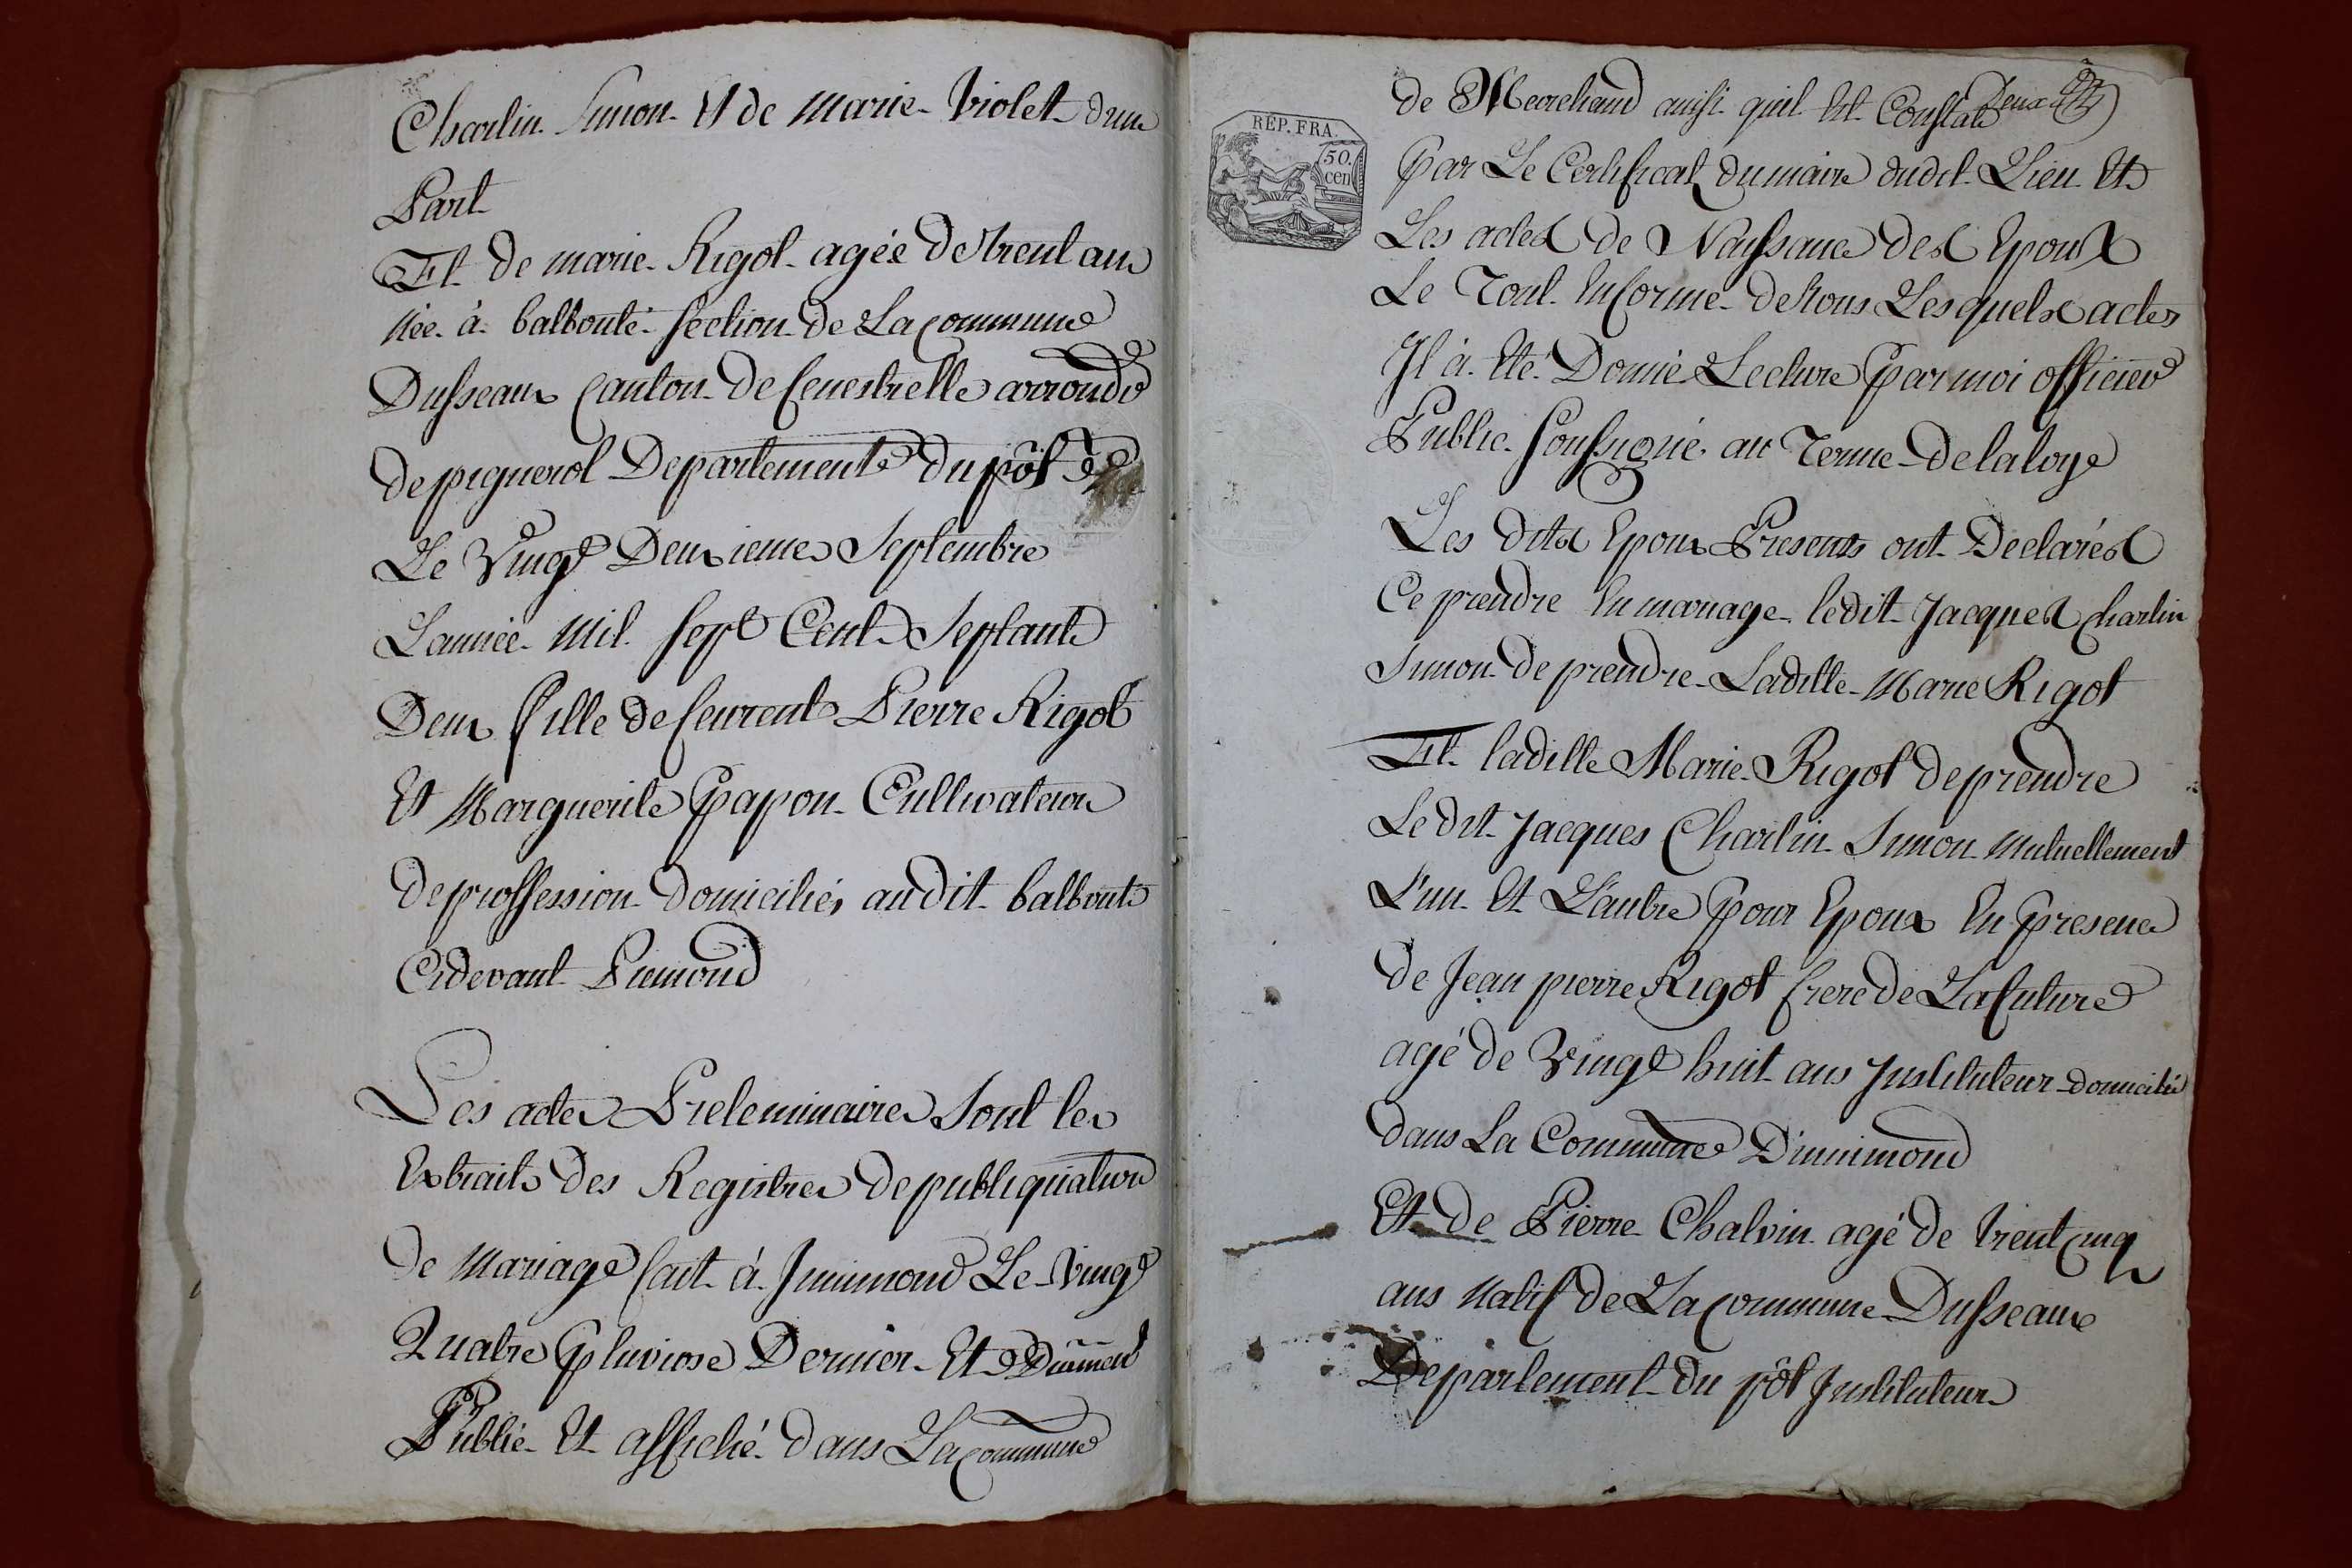 Charlin Simon Et de Marie Violet d'une
Part
Et de marie Rigot agée de trent ans
née à balboutè section de La commune
Dusseaux canton de fenestrelle arrondt
de pignerol Departement du pôt
Le Vingt Deuxieme Septembre
L'année Mil Sept Cent Septante
Deux fille de feurent Pierre Rigot
Et Marguerite Papon Cultivateur
de proffession domiciliés audit balboute
Cidevant Piemond
Les actes Preleminaires Sont les
Extraits des Registres de publiquation
de Mariage fait à Jnnimond Le Vingt
Quatre pluviose Dernier Et Dûment
Publié Et affiché dans La commune
Deux
RÉP. FRA.
50.
cen
de Mecreland ainsi quil Est Constaté
par Le Certificat du maire dudit Lieu Et
Les actes de Naissance des Epoux
Le Tout En forme de tous Lesquels actes
Jl à Eté Donné Lecture par moi officier
Public soussigné au Terme de la loye
Les dits Epoux Presents ont Declarés
Ce prendre En mariage ledit Jacques Charlin
Simon de prendre Laditte Marie Rigot
Et ladille Marie Rigot de prendre
Le dit Jacques Charlin Simon Mutuellement
L'un Et L'autre pour Epoux En presence
de Jean pierre Rigot frere de La future
agé de Vingt huit ans Jnstituteur domicilié
dans La Commune D'innimond
Et de Pierre Chalvin agé de trent cinq
ans Natif de La commune Dusseaux
Departement du pôt Jnstituteur